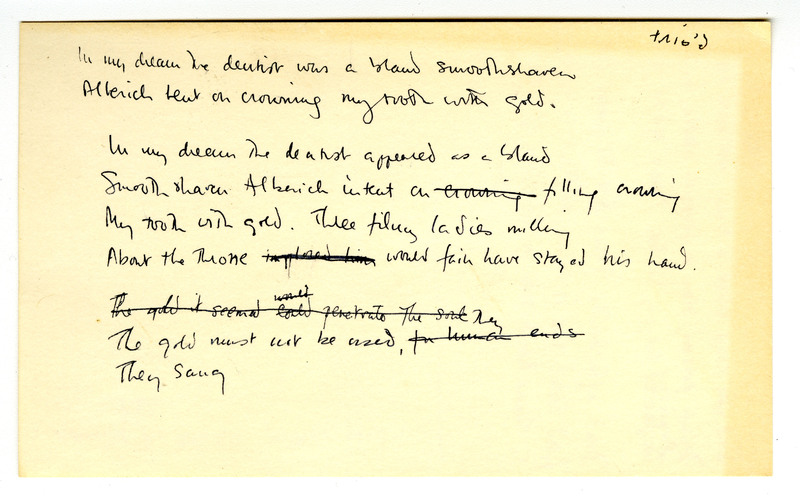 trio'd
In my dream the dentist was a bland smoothshaven
Alberich bent on crowning my tooth with gold.
In my dream the dentist appeared as a bland
Smoothshaven Alberich intent on crowning filling crowning
My tooth with gold. Three filmy ladies milling
About the throne implored him would fain have stayed his hand.
would
The gold it seemed could penetrate the soul They
The gold must not be used, for human ends
They sang